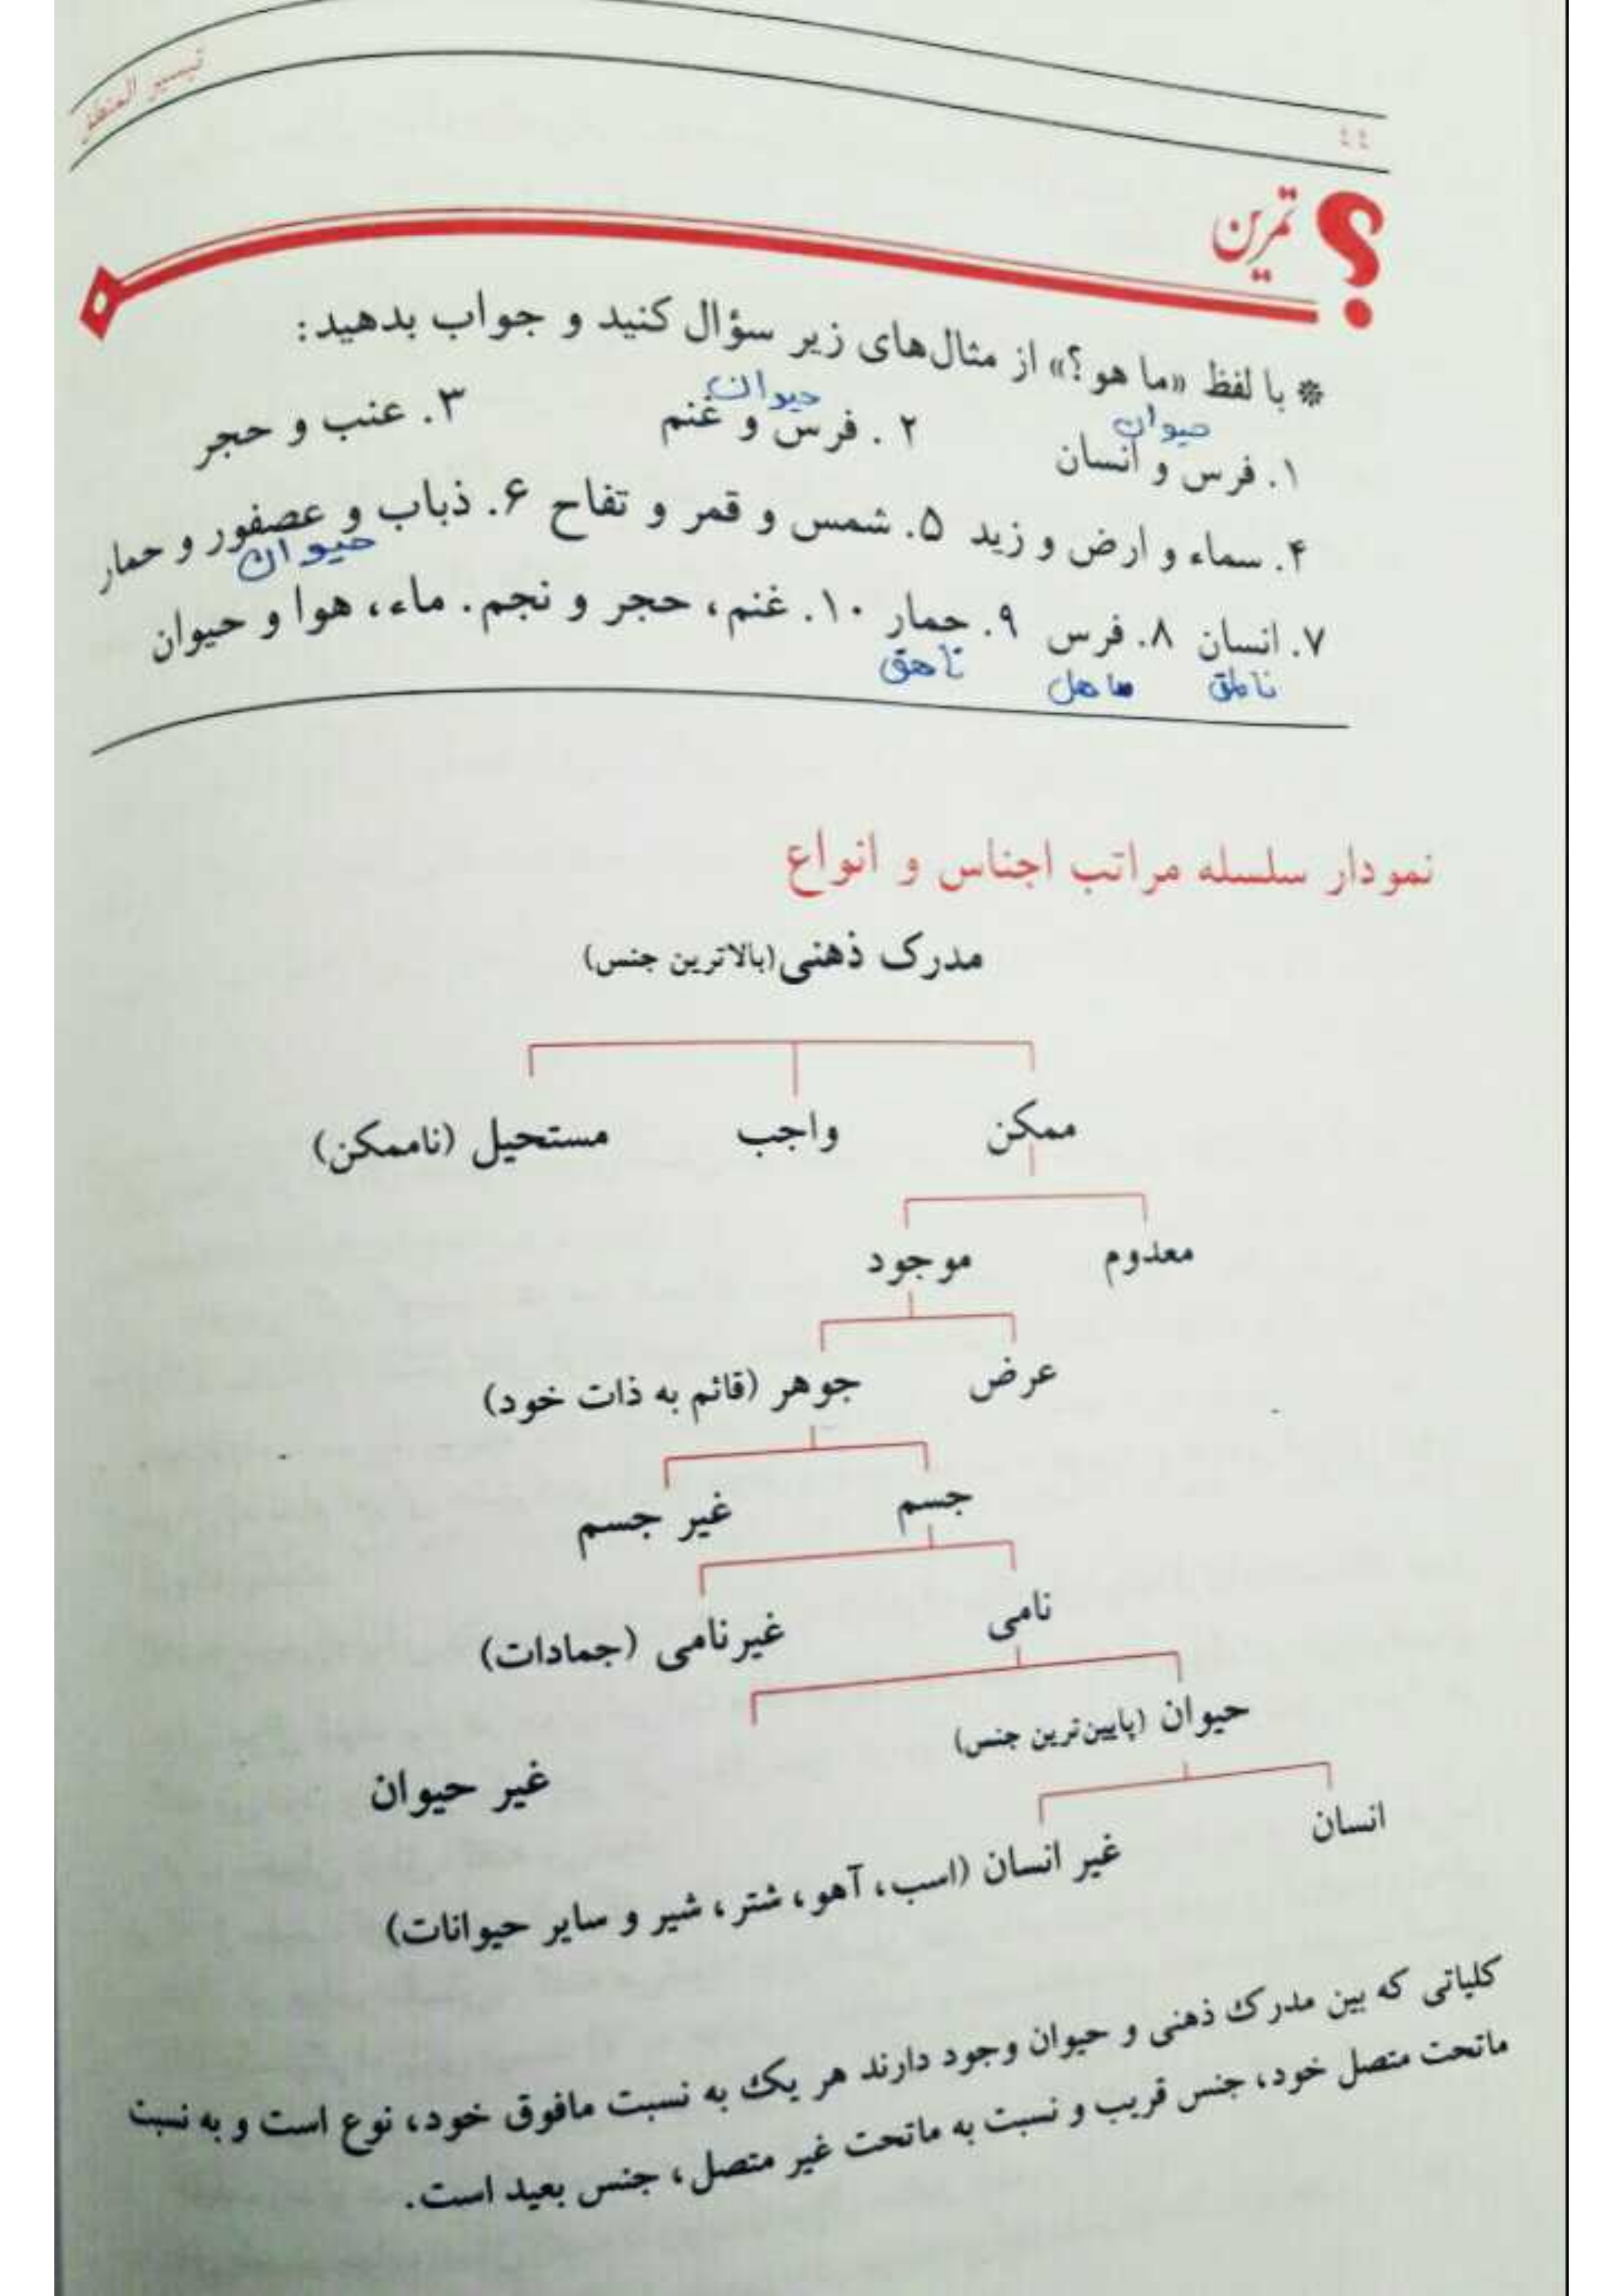 تیسیر المنطق
٤٤
؟ تمرین
* با لفظ «ما هو؟» از مثال‌های زیر سؤال کنید و جواب بدهید:
حیوان حیوان
۱. فرس و انسان ۲. فرس و غنم ۳. عنب و حجر
۴. سماء و ارض و زید ۵. شمس و قمر و تفاح ۶. ذباب و عصفور و حمار
حیوان
۷. انسان ۸. فرس ۹. حمار ۱۰. غنم، حجر و نجم. ماء، هوا و حیوان
ناطق صاهل ناهق
نمودار سلسله مراتب اجناس و انواع
مدرک ذهنی (بالاترین جنس)
ممکن واجب مستحیل (ناممکن)
معدوم موجود
عرض جوهر (قائم به ذات خود)
جسم غیر جسم
نامی غیرنامی (جمادات)
حیوان (پایین‌ترین جنس)
غیر حیوان
انسان
غیر انسان (اسب، آهو، شتر، شیر و سایر حیوانات)
کلیاتی که بین مدرک ذهنی و حیوان وجود دارند هر یک به نسبت مافوق خود، نوع است و به نسبت
ماتحت متصل خود، جنس قریب و نسبت به ماتحت غیر متصل، جنس بعید است.